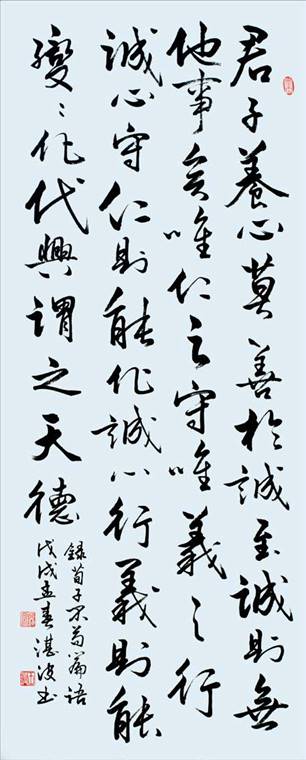 君子養心莫善於誠至誠則無
他事矣唯仁之守唯義之行
誠心守仁則能化誠心行義則能
變〻化代興謂之天德
錄荀子不苟篇語
戊戌孟春湛波书